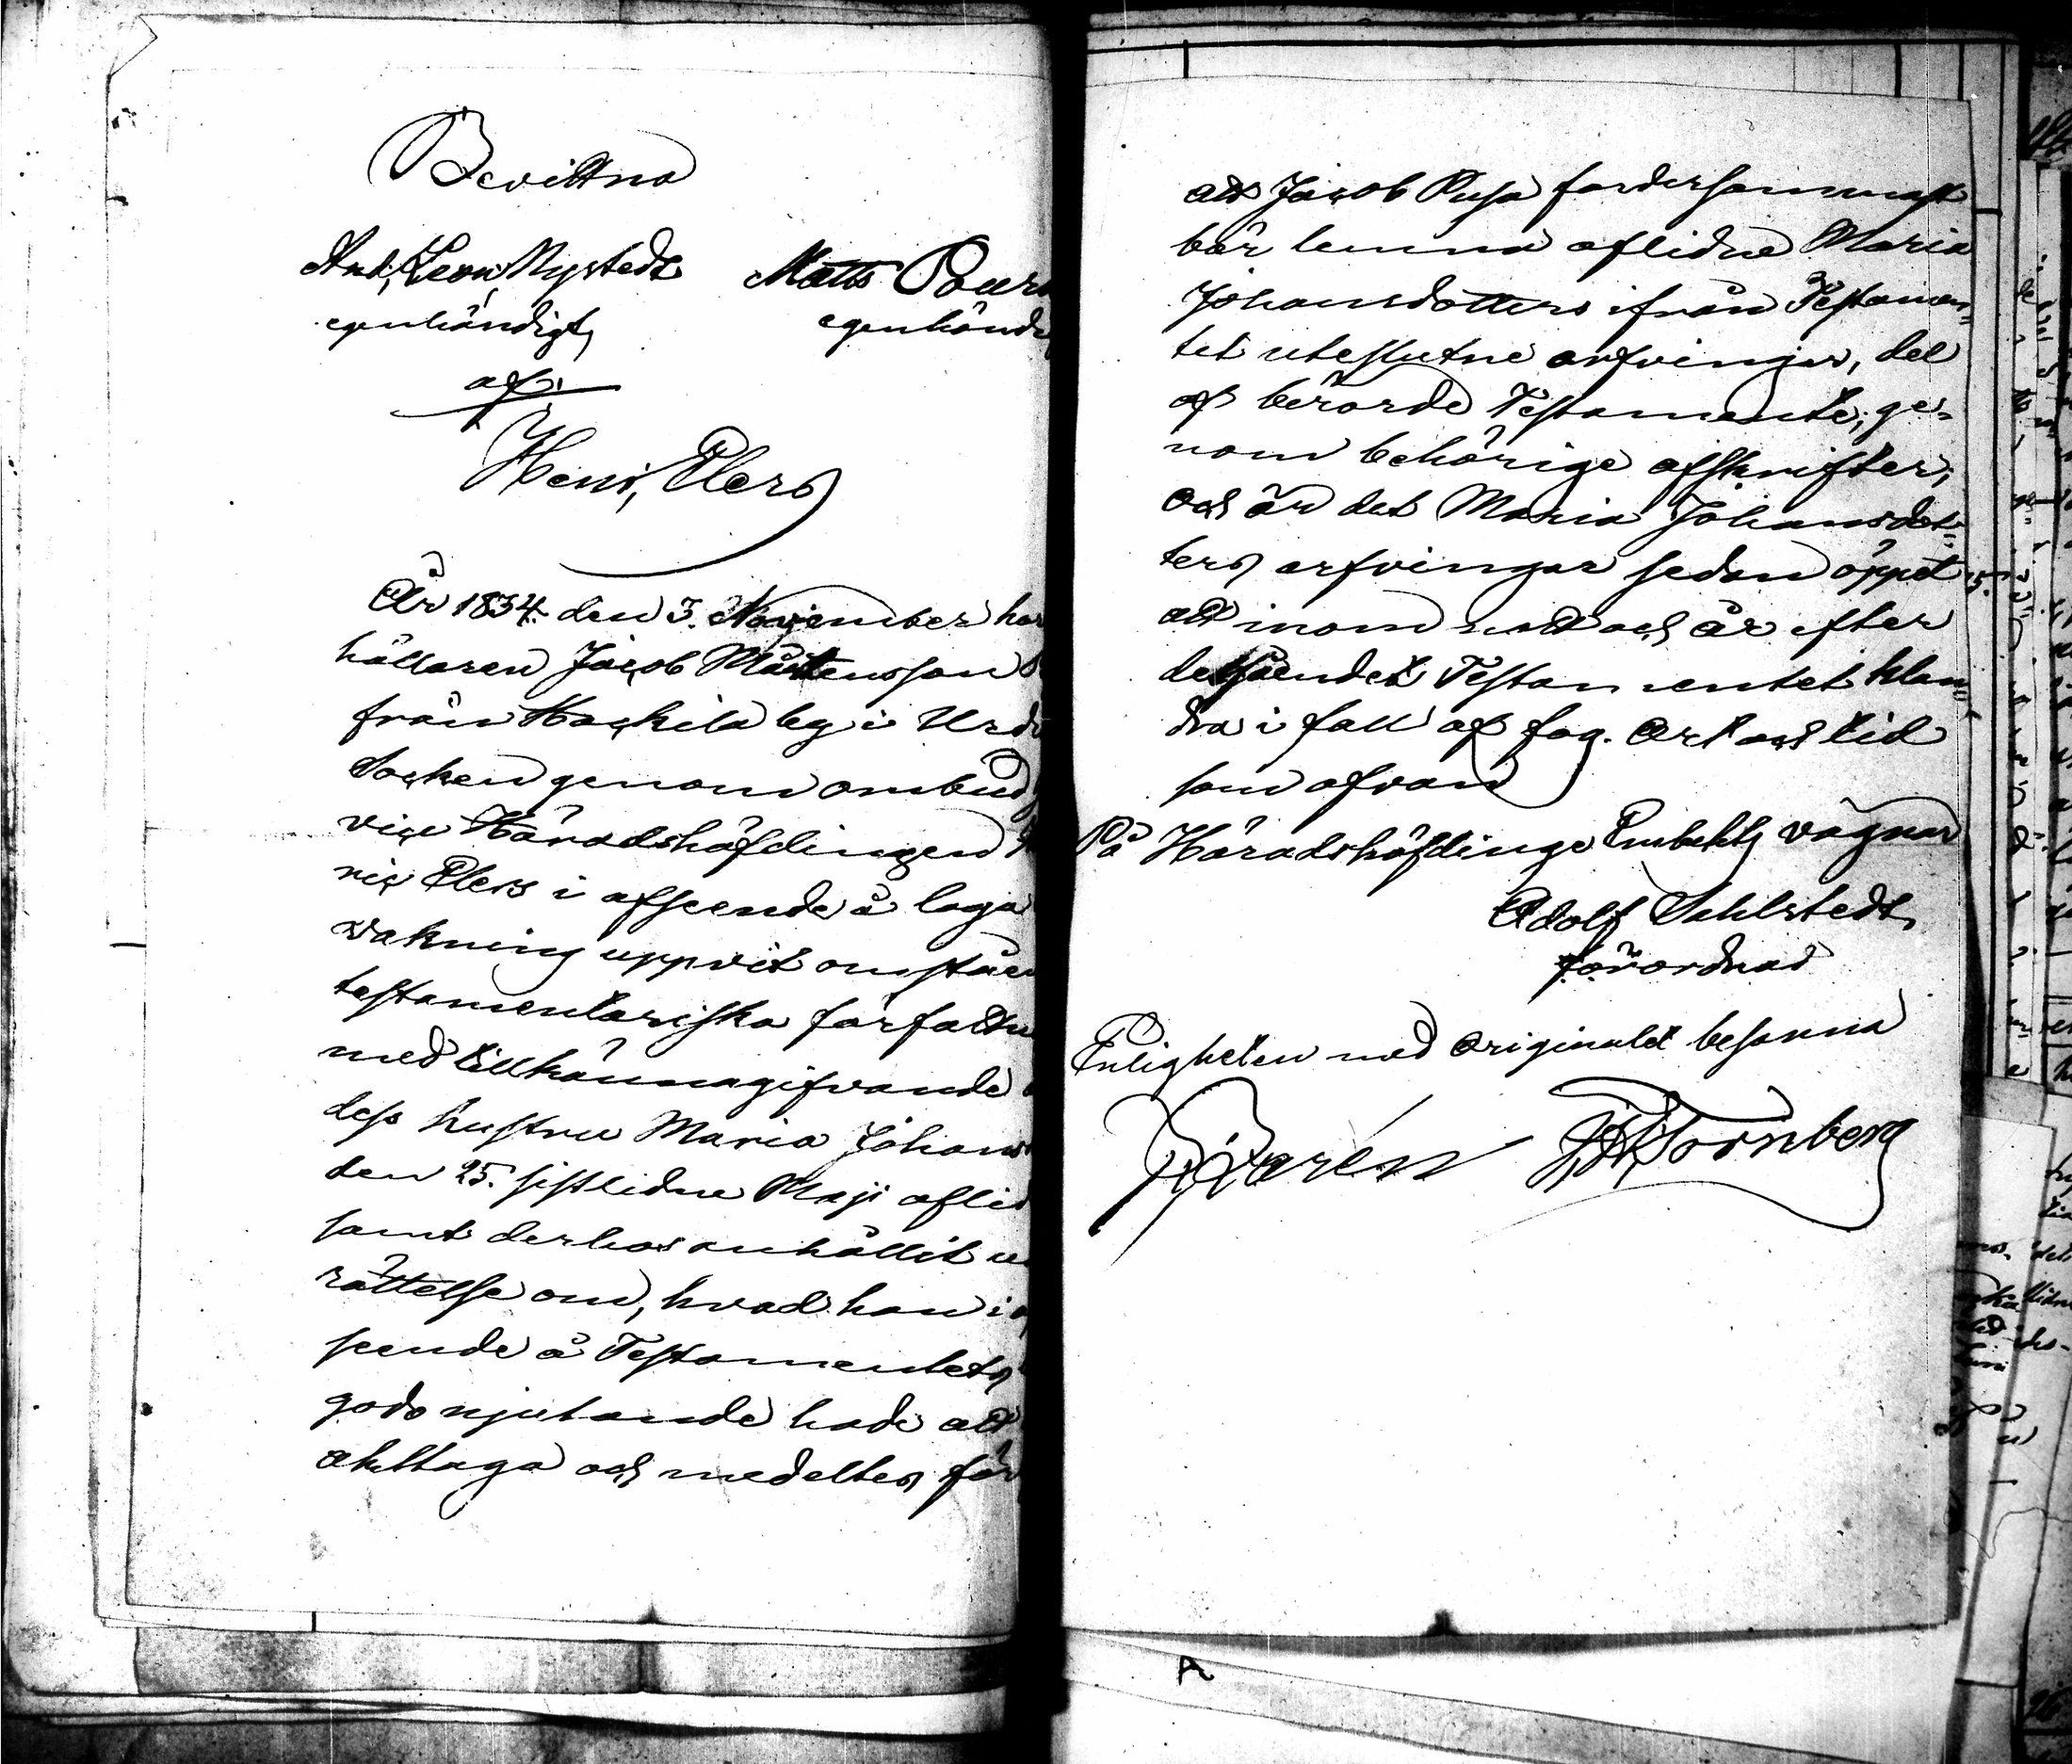 Bevittna
And, Leon, Nystedt Matts Paurs
egenhändigt, egenhändi
af.
Henr, Elers
År 1834. den 3. November har
hållaren Jacob Mårtensson
från Kackila by i Urdi
Socken genom ombud
vice Häradshöfdingen
ric Elers i afseende å laga
vakning uppvist omståen
testamentariska författn
med tillkännagifvande
dess hustru Maria Johans
den 25. sistlidne Maji aflid
samt derhos anhållit un
rättelse om, hvad han i
seende å Testamentets
godo njutande hade att
akttaga och meddeltes för
att Jacob Pusa fordersammast
bör lemna aflidne Maria
Johansdotters ifrån Testamen=
tet uteslutne arfvingar, del
af berörde Testamente, ge=
nom behörige afskrifter,
och är det Maria Johansdot=
ters arfvingar sedan öppet
att inom natt och år efter
delfåendet Testamentet klan=
dra i fall af fog. Ort och tid
som ofvan
På Häradshöfdinge Embehts vägnar
Adolf Sahlstedt,
förordnad
Enligheten med originalet besanna
Tornberg